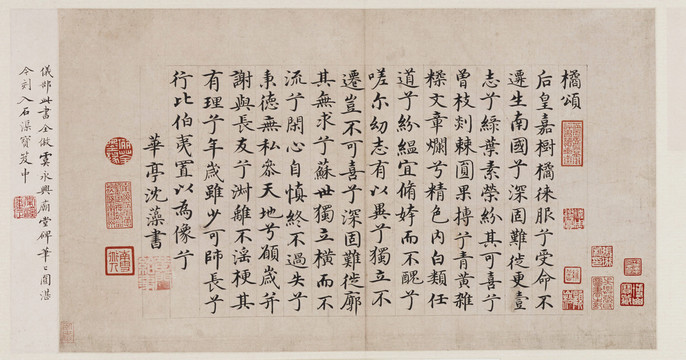 橘頌
后皇嘉樹橘徠服兮受命不
遷生南國兮深固難徙更壹
志兮綠葉素榮紛其可喜兮
曾枝剡棘圓果摶兮青黃雜
糅文章爛兮精色内白類任
道兮紛緼宜脩姱而不醜兮
嗟尔幼志有以異兮獨立不
遷豈不可喜兮深固難徙廓
其無求兮蘇世獨立橫而不
流兮閑心自慎終不過失兮
秉德無私參天地兮願歲并
謝與長友兮淑離不淫梗其
有理兮年歲雖少可師長兮
行比伯夷置以為像兮
華亭沈藻書
儀部此書全倣虞永興廟堂碑筆〻圓湛
今刻入石渠寶笈中